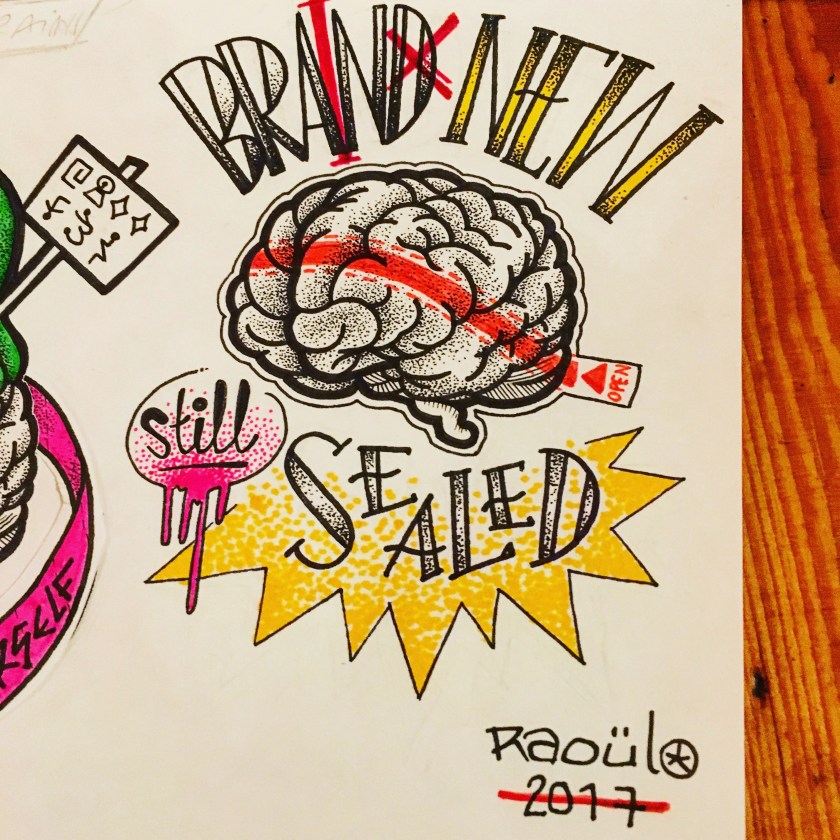 BRAIND NEW
OPEN
still
SEALED
RSELF
Raoül
2017